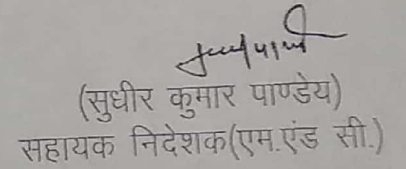 (सुधीर कुमार पाण्डेय)
सहायक निदेशक(एम.एंड सी.)